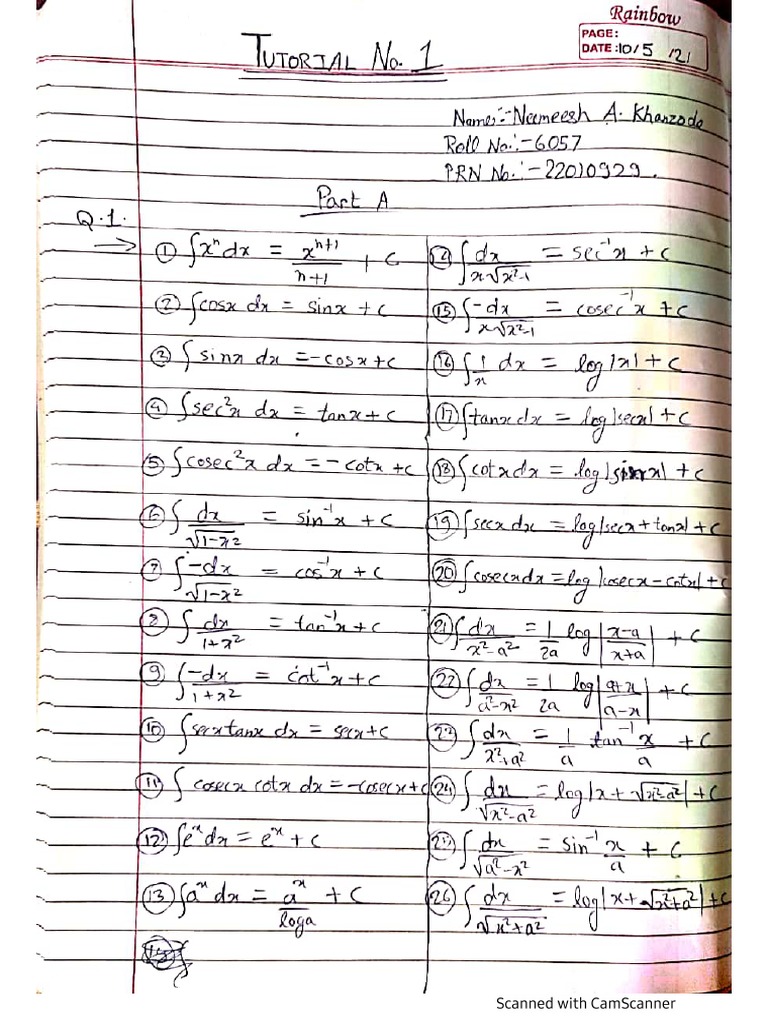 Rainbow
PAGE:
DATE: 10/5/21
TUTORIAL No. 1
Name:- Neemeesh A. Khanzode
Roll No.:- 6057
PRN No.:- 22010929.
Part A
Q.1.
→ ① ∫xⁿdx = xⁿ⁺¹/(n+1) + C
② ∫cosx dx = sinx + C
③ ∫sinx dx = -cosx + C
④ ∫sec²x dx = tanx + C
⑤ ∫cosec²x dx = -cotx + C
⑥ ∫dx/√(1-x²) = sin⁻¹x + C
⑦ ∫-dx/√(1-x²) = cos⁻¹x + C
⑧ ∫dx/(1+x²) = tan⁻¹x + C
⑨ ∫-dx/(1+x²) = cot⁻¹x + C
⑩ ∫secxtanx dx = secx + C
⑪ ∫cosecx cotx dx = -cosecx + C
⑫ ∫eˣdx = eˣ + C
⑬ ∫aˣdx = aˣ/loga + C
⑭ ∫dx/(x√(x²-1)) = sec⁻¹x + C
⑮ ∫-dx/(x√(x²-1)) = cosec⁻¹x + C
⑯ ∫1/x dx = log|x| + C
⑰ ∫tanx dx = log|secx| + C
⑱ ∫cotx dx = log|sinx| + C
⑲ ∫secx dx = log|secx + tanx| + C
⑳ ∫cosecx dx = log|cosecx - cotx| + C
㉑ ∫dx/(x²-a²) = 1/2a log|(x-a)/(x+a)| + C
㉒ ∫dx/(a²-x²) = 1/2a log|(a+x)/(a-x)| + C
㉓ ∫dx/(x²+a²) = 1/a tan⁻¹ x/a + C
㉔ ∫dx/√(x²-a²) = log|x + √(x²-a²)| + C
㉕ ∫dx/√(a²-x²) = sin⁻¹ x/a + C
㉖ ∫dx/√(x²+a²) = log|x + √(x²+a²)| + C
Scanned with CamScanner